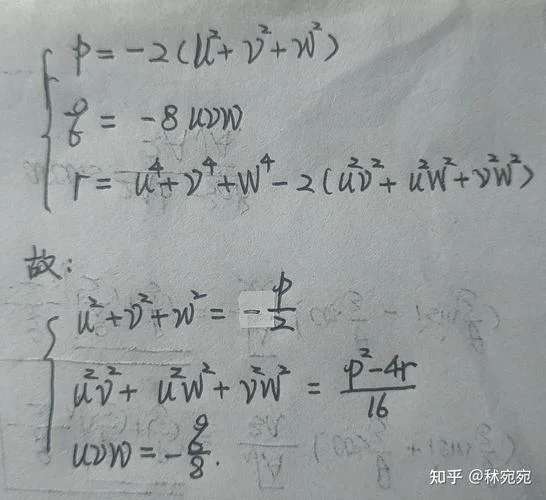 p = -2(u²+v²+w²)
q = -8uvw
r = u⁴+v⁴+w⁴-2(u²v²+u²w²+v²w²)
故:
u²+v²+w² = -p/2
u²v²+u²w²+v²w² = (p²-4r)/16
uvw = -q/8.
知乎 @秝宛宛